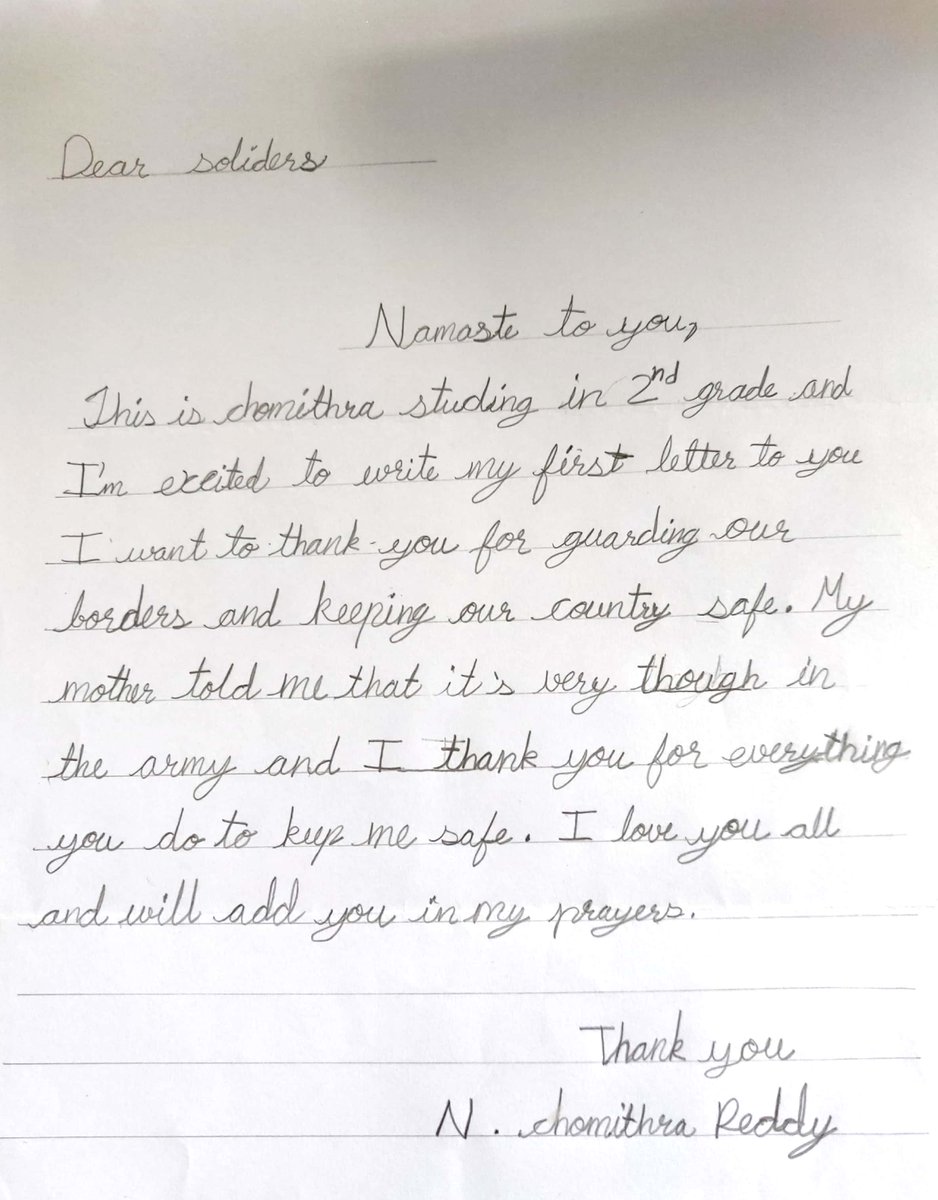 Dear soliders
Namaste to you,
This is chomithra studing in 2nd grade and
I'm excited to write my first letter to you
I want to thank you for guarding our
borders and keeping our country safe. My
mother told me that it's very though in
the army and I thank you for everything
you do to keep me safe. I love you all
and will add you in my prayers.
Thank you
N. chomithra Reddy